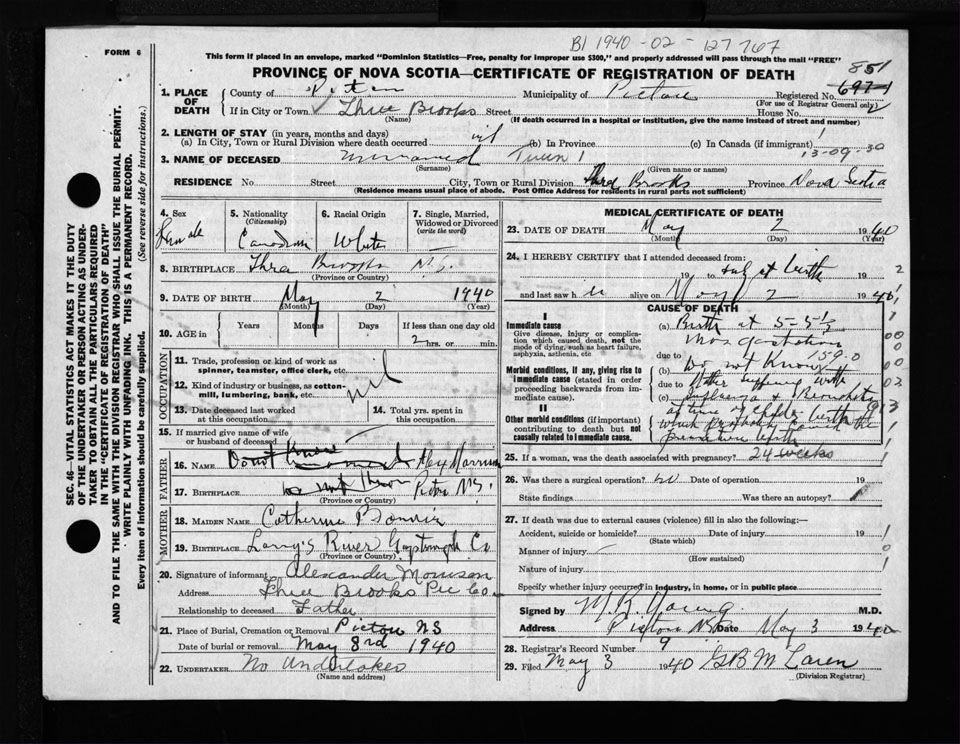 BI 1940 - 02 - 127767
FORM 6
This form if placed in an envelope, marked "Dominion Statistics—Free, penalty for improper use $300," and properly addressed will pass through the mail "FREE"
PROVINCE OF NOVA SCOTIA—CERTIFICATE OF REGISTRATION OF DEATH
851
1. PLACE OF DEATH
County of Pictou Municipality of Pictou Registered No.
(For use of Registrar General only)
If in City or Town Three Brooks Street House No.
(Name) (If death occurred in a hospital or institution, give the name instead of street and number)
2. LENGTH OF STAY (in years, months and days)
(a) In City, Town or Rural Division where death occurred (b) In Province nil (c) In Canada (if immigrant)
13-09-30
3. NAME OF DECEASED Unnamed Twin 1
(Surname) (Given name or names)
RESIDENCE No Street City, Town or Rural Division Three Brooks Province Nova Scotia
(Residence means usual place of abode. Post Office Address for residents in rural parts not sufficient)
4. Sex Female
5. Nationality (Citizenship) Canadian
6. Racial Origin White
7. Single, Married, Widowed or Divorced (write the word) —
8. BIRTHPLACE Three Brooks N.S.
(Province or Country)
9. DATE OF BIRTH May 2 1940
(Month) (Day) (Year)
10. AGE in Years Months Days If less than one day old
2 hrs. or min.
OCCUPATION
11. Trade, profession or kind of work as spinner, teamster, office clerk, etc.
12. Kind of industry or business, as cotton-mill, lumbering, bank, etc. nil
13. Date deceased last worked at this occupation
14. Total yrs. spent in this occupation
15. If married give name of wife or husband of deceased
FATHER
16. NAME Alex Morrison
17. BIRTHPLACE Pictou N.S.
(Province or Country)
MOTHER
18. MAIDEN NAME Catherine
19. BIRTHPLACE Larry's River Co
(Province or Country)
20. Signature of informant Alexander Morrison
Address Three Brooks Pic Co.
Relationship to deceased Father
21. Place of Burial, Cremation or Removal Pictou NS
Date of burial or removal May 3rd 1940
22. UNDERTAKER No Undertaker
(Name and address)
MEDICAL CERTIFICATE OF DEATH
23. DATE OF DEATH May 2 1940
(Month) (Day) (Year)
24. I HEREBY CERTIFY that I attended deceased from:
19 to at birth 19
and last saw h alive on May 2 1940
CAUSE OF DEATH
I
Immediate cause
Give disease, injury or complication which caused death, not the mode of dying, such as heart failure, asphyxia, asthenia, etc
(a) Birth at 5-5½ mos gestation
due to
159.0
Morbid conditions, if any, giving rise to immediate cause (stated in order proceeding backwards from immediate cause).
(b) Do not Know
due to Mother suffering with
(c) Influenza & Bronchitis
II
Other morbid conditions (if important) contributing to death but not causally related to immediate cause.
at time of birth
which probably caused the
premature birth
25. If a woman, was the death associated with pregnancy? 24 weeks
26. Was there a surgical operation? no Date of operation
State findings Was there an autopsy?
27. If death was due to external causes (violence) fill in also the following:—
Accident, suicide or homicide? Date of injury 19
(State which)
Manner of injury —
(How sustained)
Nature of injury
Specify whether injury occurred in industry, in home, or in public place
Signed by M.D.
Address Pictou N.S. Date May 3 1940
28. Registrar's Record Number 9
29. Filed May 3 1940
(Division Registrar)
SEC. 46—VITAL STATISTICS ACT MAKES IT THE DUTY OF THE UNDERTAKER OR PERSON ACTING AS UNDERTAKER TO OBTAIN ALL THE PARTICULARS REQUIRED IN THE "CERTIFICATE OF REGISTRATION OF DEATH" AND TO FILE THE SAME WITH THE DIVISION REGISTRAR WHO SHALL ISSUE THE BURIAL PERMIT.
WRITE PLAINLY WITH UNFADING INK. THIS IS A PERMANENT RECORD.
Every item of information should be carefully supplied. (See reverse side for instructions.)